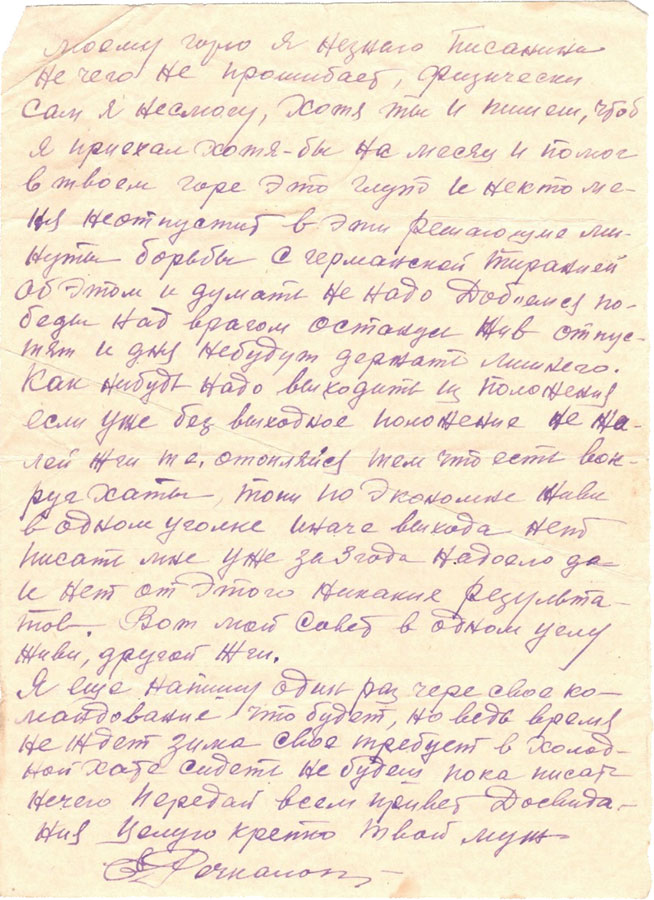 моему горю я незнаю Писанина
не чего не прошибает, физически
сам я несмогу, хотя ты и пишеш, чтоб
я приехал хотя-бы на месяц и помог
в твоем горе это глупо и некто ме-
ня неотпустит в эти решающие ми-
нуты борьбы с германской тиранией
об этом и думать не надо Добъемся по-
беды над врагом останусь жив отпус-
тят и дня небудут держать лишнего.
Как нибудь надо выходить из положения
если уже без выходное положение не жа-
лей жги те. отопляйся тем что есть вок-
руг хаты, топи по экономне живи
в одном уголке иначе выхода нет
писать мне уже за 3 года надоело да
и нет от этого никакие результа-
тов. Вот мой совет в одном углу
живи, другой жги.
Я еще напишу один раз чере свое ко-
мандование что будет, но ведь время
не ждет зима свое требует в холод-
ной хате сидеть не будем пока писать
нечего Передай всем привет Досвида-
ния Целую крепко твой муж